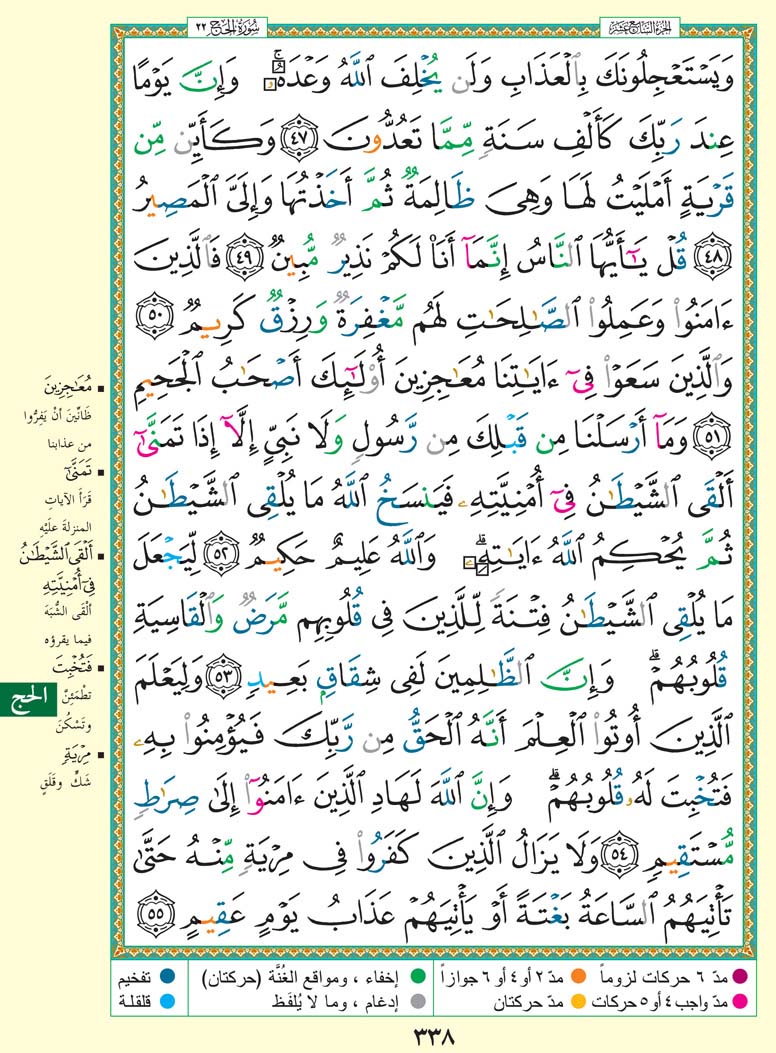 سُورَةُ الحَجّ ٢٢
الجُزءُ السَّابِعُ عَشَرَ
وَيَسْتَعْجِلُونَكَ بِٱلْعَذَابِ وَلَن يُخْلِفَ ٱللَّهُ وَعْدَهُۥۚ وَإِنَّ يَوْمًا
عِندَ رَبِّكَ كَأَلْفِ سَنَةٍ مِّمَّا تَعُدُّونَ ٤٧ وَكَأَيِّن مِّن
قَرْيَةٍ أَمْلَيْتُ لَهَا وَهِيَ ظَالِمَةٌ ثُمَّ أَخَذْتُهَا وَإِلَيَّ ٱلْمَصِيرُ
٤٨ قُلْ يَـٰٓأَيُّهَا ٱلنَّاسُ إِنَّمَآ أَنَا۠ لَكُمْ نَذِيرٌ مُّبِينٌ ٤٩ فَٱلَّذِينَ
ءَامَنُوا۟ وَعَمِلُوا۟ ٱلصَّـٰلِحَـٰتِ لَهُم مَّغْفِرَةٌ وَرِزْقٌ كَرِيمٌ ٥٠
وَٱلَّذِينَ سَعَوْا۟ فِىٓ ءَايَـٰتِنَا مُعَـٰجِزِينَ أُو۟لَـٰٓئِكَ أَصْحَـٰبُ ٱلْجَحِيمِ
٥١ وَمَآ أَرْسَلْنَا مِن قَبْلِكَ مِن رَّسُولٍ وَلَا نَبِيٍّ إِلَّآ إِذَا تَمَنَّىٰٓ
أَلْقَى ٱلشَّيْطَـٰنُ فِىٓ أُمْنِيَّتِهِۦ فَيَنسَخُ ٱللَّهُ مَا يُلْقِى ٱلشَّيْطَـٰنُ
ثُمَّ يُحْكِمُ ٱللَّهُ ءَايَـٰتِهِۦۗ وَٱللَّهُ عَلِيمٌ حَكِيمٌ ٥٢ لِّيَجْعَلَ
مَا يُلْقِى ٱلشَّيْطَـٰنُ فِتْنَةً لِّلَّذِينَ فِى قُلُوبِهِم مَّرَضٌ وَٱلْقَاسِيَةِ
قُلُوبُهُمْۗ وَإِنَّ ٱلظَّـٰلِمِينَ لَفِى شِقَاقٍ بَعِيدٍ ٥٣ وَلِيَعْلَمَ
ٱلَّذِينَ أُوتُوا۟ ٱلْعِلْمَ أَنَّهُ ٱلْحَقُّ مِن رَّبِّكَ فَيُؤْمِنُوا۟ بِهِۦ
فَتُخْبِتَ لَهُۥ قُلُوبُهُمْۗ وَإِنَّ ٱللَّهَ لَهَادِ ٱلَّذِينَ ءَامَنُوٓا۟ إِلَىٰ صِرَٰطٍ
مُّسْتَقِيمٍ ٥٤ وَلَا يَزَالُ ٱلَّذِينَ كَفَرُوا۟ فِى مِرْيَةٍ مِّنْهُ حَتَّىٰ
تَأْتِيَهُمُ ٱلسَّاعَةُ بَغْتَةً أَوْ يَأْتِيَهُمْ عَذَابُ يَوْمٍ عَقِيمٍ ٥٥
مُعَـٰجِزِينَ
ظَانِّينَ أنْ يَفِرُّوا
من عذابنا
تَمَنَّىٰٓ
قَرَأ الآيَاتِ
المنزلةَ عليْهِ
أَلْقَى ٱلشَّيْطَـٰنُ
فِىٓ أُمْنِيَّتِهِ
ألْقَى الشُّبَهَ
فيما يقرؤه
فَتُخْبِتَ
تطْمَئِنّ
وتَسْكُنَ
مِرْيَةٍ
شَكٍّ وقَلَقٍ
الحج
مدّ ٦ حركات لزوماً
مدّ ٢ أو ٤ أو ٦ جوازاً
إخفاء ، ومواقع الغُنَّة (حركتان)
تفخيم
مدّ واجب ٤ أو ٥ حركات
مدّ حركتان
إدغام ، وما لا يُلفَظ
قلقلة
٣٣٨